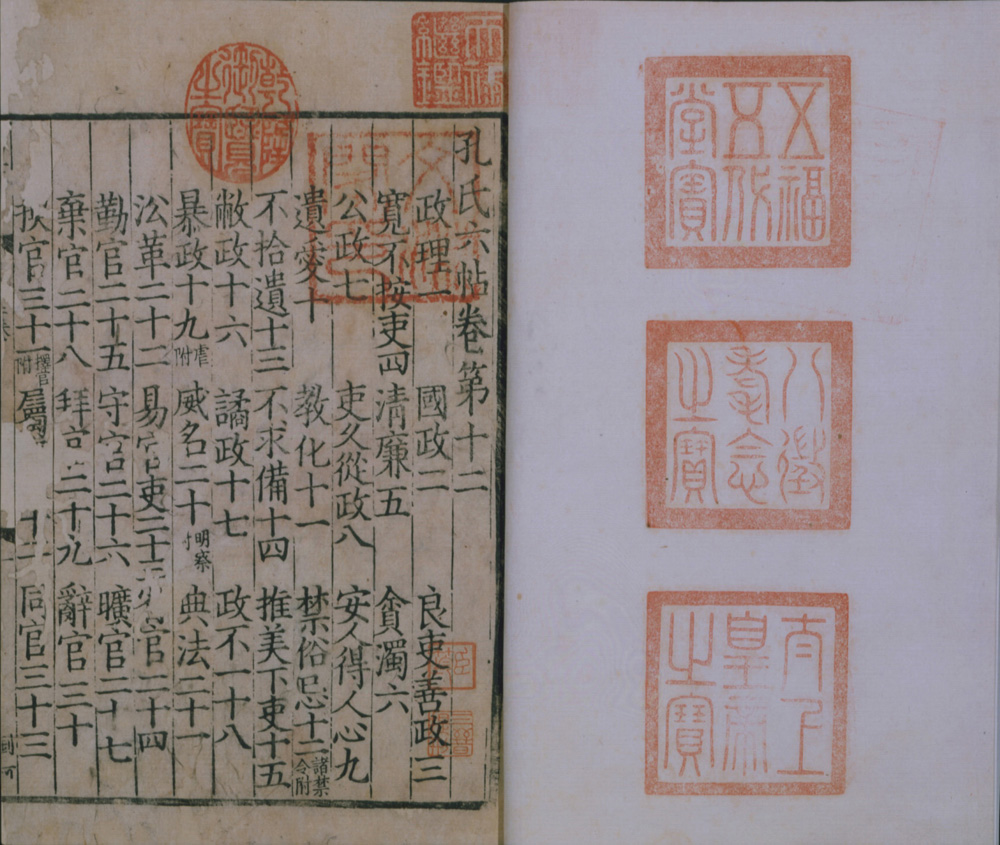 五福
五代
堂寶
八徵
耄念
之寶
太上
皇帝
之寶
天祿
繼鑑
乾隆
御覽
之寶
孔氏六帖卷第十二
政理一 國政二 良吏善政三
寬不按吏四 清廉五 貪濁六
公政七 吏久從政八 安人得人心九
遺愛十 教化十一 禁俗忌十二 諸禁令附
不拾遺十三 不求備十四 推美下吏十五
敝政十六 譎政十七 政不一十八
暴政十九 虐附 威名二十 明察 典法二十一
㳂革二十二 易官吏二十三 官二十四
勤官二十五 守官二十六 曠官二十七
棄官二十八 拜官二十九 辭官三十
官三十一 擇官附 同官三十三